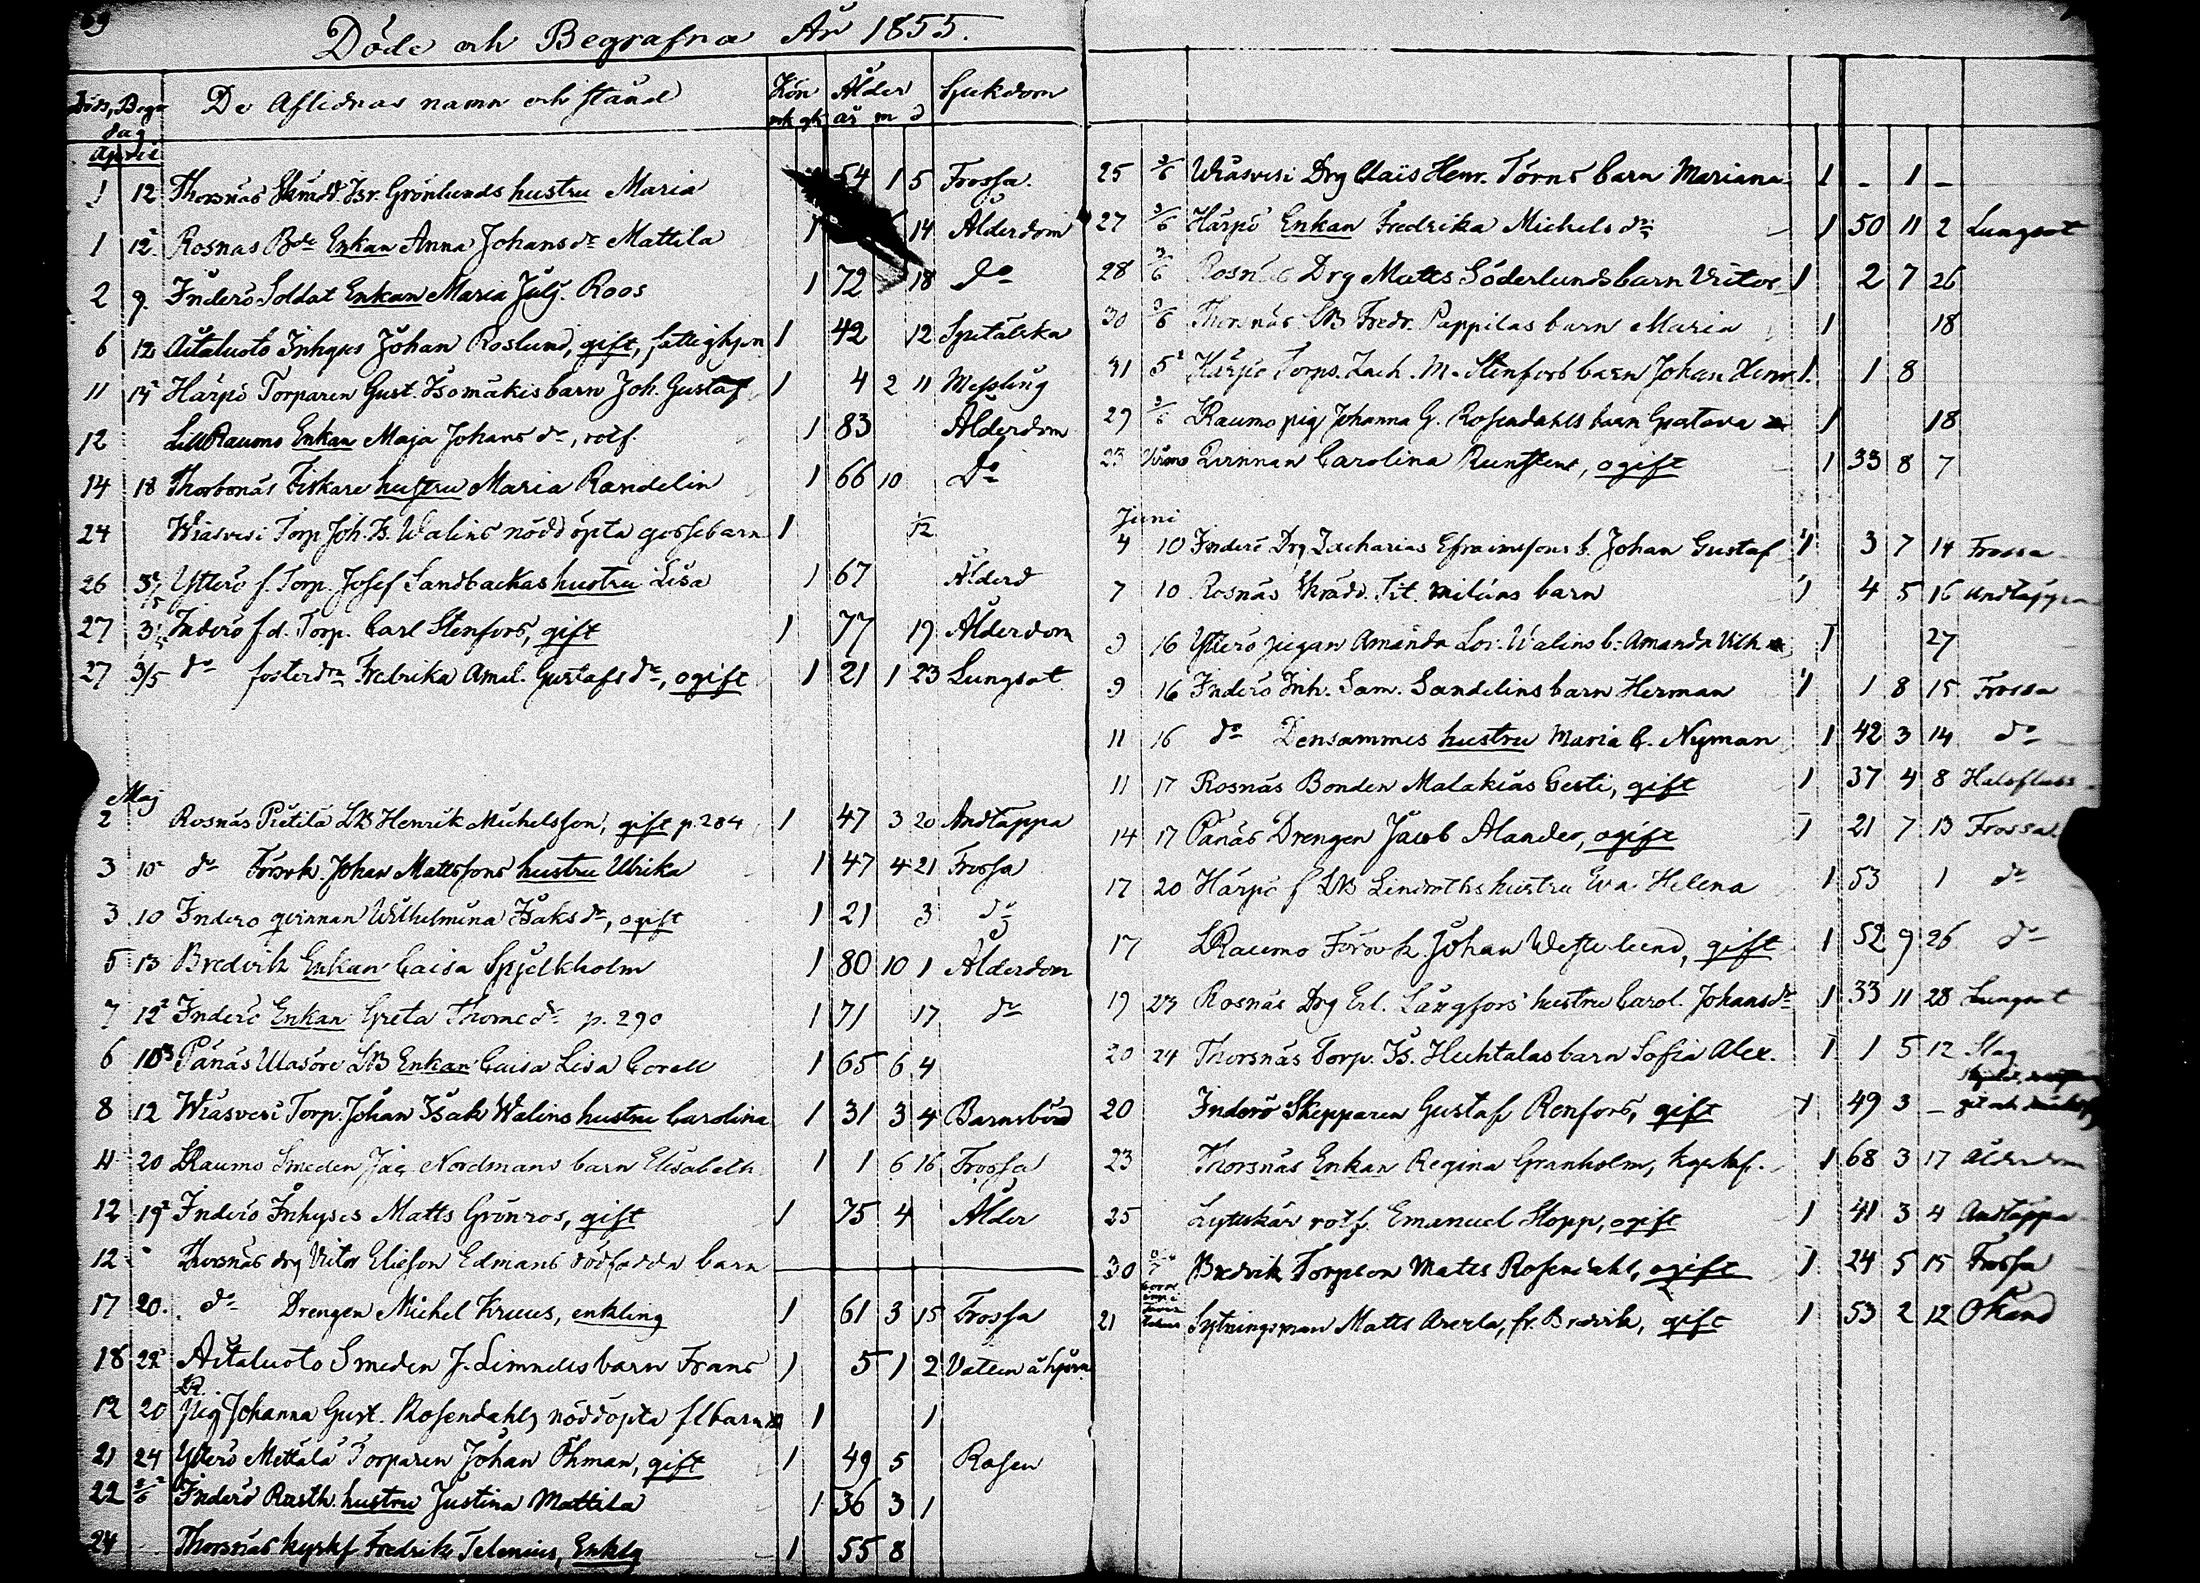 Döde och Begrafna År 1855.
Döds, Begr. dag De Aflidnas namn och stånd Kön mk qk Ålder år m d Sjukdom
April
1 12 Thorsnäs Skrädd. Isr. Grönlunds hustru Maria 54 1 5 Frossa.
1 12 Rosnäs Bde Enkan Anna Johansdr Mattila 1 14 Ålderdom
2 9 Inderö Soldat Enkan Maria Julj. Roos 1 72 18 do
6 12 Aitaluoto Inhyses Johan Roslund, gift, fattighjon 1 42 12 Spetälska
11 15 Härpö Torparen Gust. Isomäkis barn Joh. Gustaf 1 4 2 11 Messling
12 Lill Raumo Enkan Maja Johans dr, rotf. 1 83 Ålderdom
14 18 Thorsnäs Fiskare hustru Maria Randelin 1 66 10 Do
24 Wiasvesi Torp. Joh. Is. Walins nöddöpta gossebarn 1 1/12
26 3/5 Ytterö f. Torp. Josef Sandbackas hustru Lisa 1 67 Ålderd
27 3/5 Inderö fd. Torp. Carl Stenfors, gift 1 77 19 Ålderdom
27 3/5 do fosterdr Fredrika Amal. Gustafsdr, ogift 1 21 1 23 Lungsot
Maj
2 Rosnäs Pietilä LB Henrik Michelsson, gift p. 284 1 47 3 20 Andtäppa
3 10 do Försvk. Johan Mattssons hustru Ulrika 1 47 4 21 Frossa
3 10 Inderö qvinnan Wilhelmina Isaksdr, ogift 1 21 3 do
5 13 Bredvik Enkan Caisa Spjelkholm 1 80 10 1 Ålderdom
7 12 Inderö Enkan Greta Thomedr p. 290 1 71 17 do
6 13 Pänäs Ulasöre LB Enkan Caisa Lisa Corell 1 65 6 4
8 12 Wiasvesi Torp. Johan Isak Walins hustru Carolina 1 31 3 4 Barnsbörd
11 20 LRaumo Smeden Jac. Nordmans barn Elisabeth 1 1 6 16 Frossa
12 19 Inderö Inhyses Matts Grönroos, gift 1 75 4 Ålder
12 Thorsnäs drg Victor Eliesson Edmans dödfödda barn
17 20 do Drengen Michel Kruus, enkling 1 61 3 15 Frossa
18 22 Aitaluoto Smeden J. Limnells barn Frans 1 5 1 2 Vatten å hjern
12 20 LR. pig Johanna Gust. Rosendahls nöddöpta flbarn 1 1
21 24 Ytterö Mettälä Torparen Johan Öhman, gift 1 49 5 Rosen
22 2/6 Inderö Rusth. hustru Justina Mattila 1 36 3 1
24 Thorsnäs kyrkf Fredrik Telenius, Enklg 1 55 8
25 3/6 Wiasvesi Drg Clais Henr. Törns barn Mariana 1 - 1 -
27 3/6 Härpö Enkan Fredrika Michelsdr 1 50 11 2 Lungsot
28 3/6 Rosnäs Drg Matts Söderlunds barn Victor 1 2 7 26
30 3/6 Thorsnäs LB Fredr. Pappilas barn Maria 1 18
31 5 Härpö Torps. Zach. M. Stenfors barn Johan Henr. 1 1 8
29 3/6 LRaumo pig Johanna G. Rosendahls barn Gustava 1 18
23 Ulfsno Qvinnan Carolina Runsten, ogift 1 33 8 7
Juni
4 10 Inderö Drg Zacharias Efraimssons b. Johan Gustaf 1 3 7 14 Frossa
7 10 Rosnäs Skrädd. Tit. Miläns barn 1 4 5 16 Andtäppa
9 16 Ytterö pigan Amanda Lov. Walins b. Amanda Vilh. 1 27
9 16 Inderö Inh. Sam. Sandelins barn Herman 1 1 8 15 Frossa
11 16 do Densammes hustru Maria C. Nyman 1 42 3 14 do
11 17 Rosnäs Bonden Malakias Gesti, gift 1 37 4 8 Halsfluss
14 17 Pänäs Drengen Jacob Alander, ogift 1 21 7 13 Frossa
17 20 Härpö f LB Lindroths hustru Eva Helena 1 53 1 do
17 LRaumo Försvk. Johan Westerlund, gift 1 52 9 26 do
19 23 Rosnäs Drg Erl. Långfors hustru Carol. Johansdr 1 33 11 28 Lungsot
20 24 Thorsnäs Torp. Is. Huhtalas barn Sofia Alex. 1 1 5 12 Slag
20 Inderö Skepparen Gustaf Renfors, gift 1 49 3 -
23 Thorsnäs Enkan Regina Granholm, kyrkof. 1 68 3 17 Ålderdom
25 Lyttskär rotf. Emanuel Stopp, ogift 1 41 3 4 Andtäppa
30 Bredvik Torpson Matts Rosendahl, ogift 1 24 5 15 Frossa
21 Sytningsman Matts Arerla, fr. Bredvik, gift 1 53 2 12 Okänd